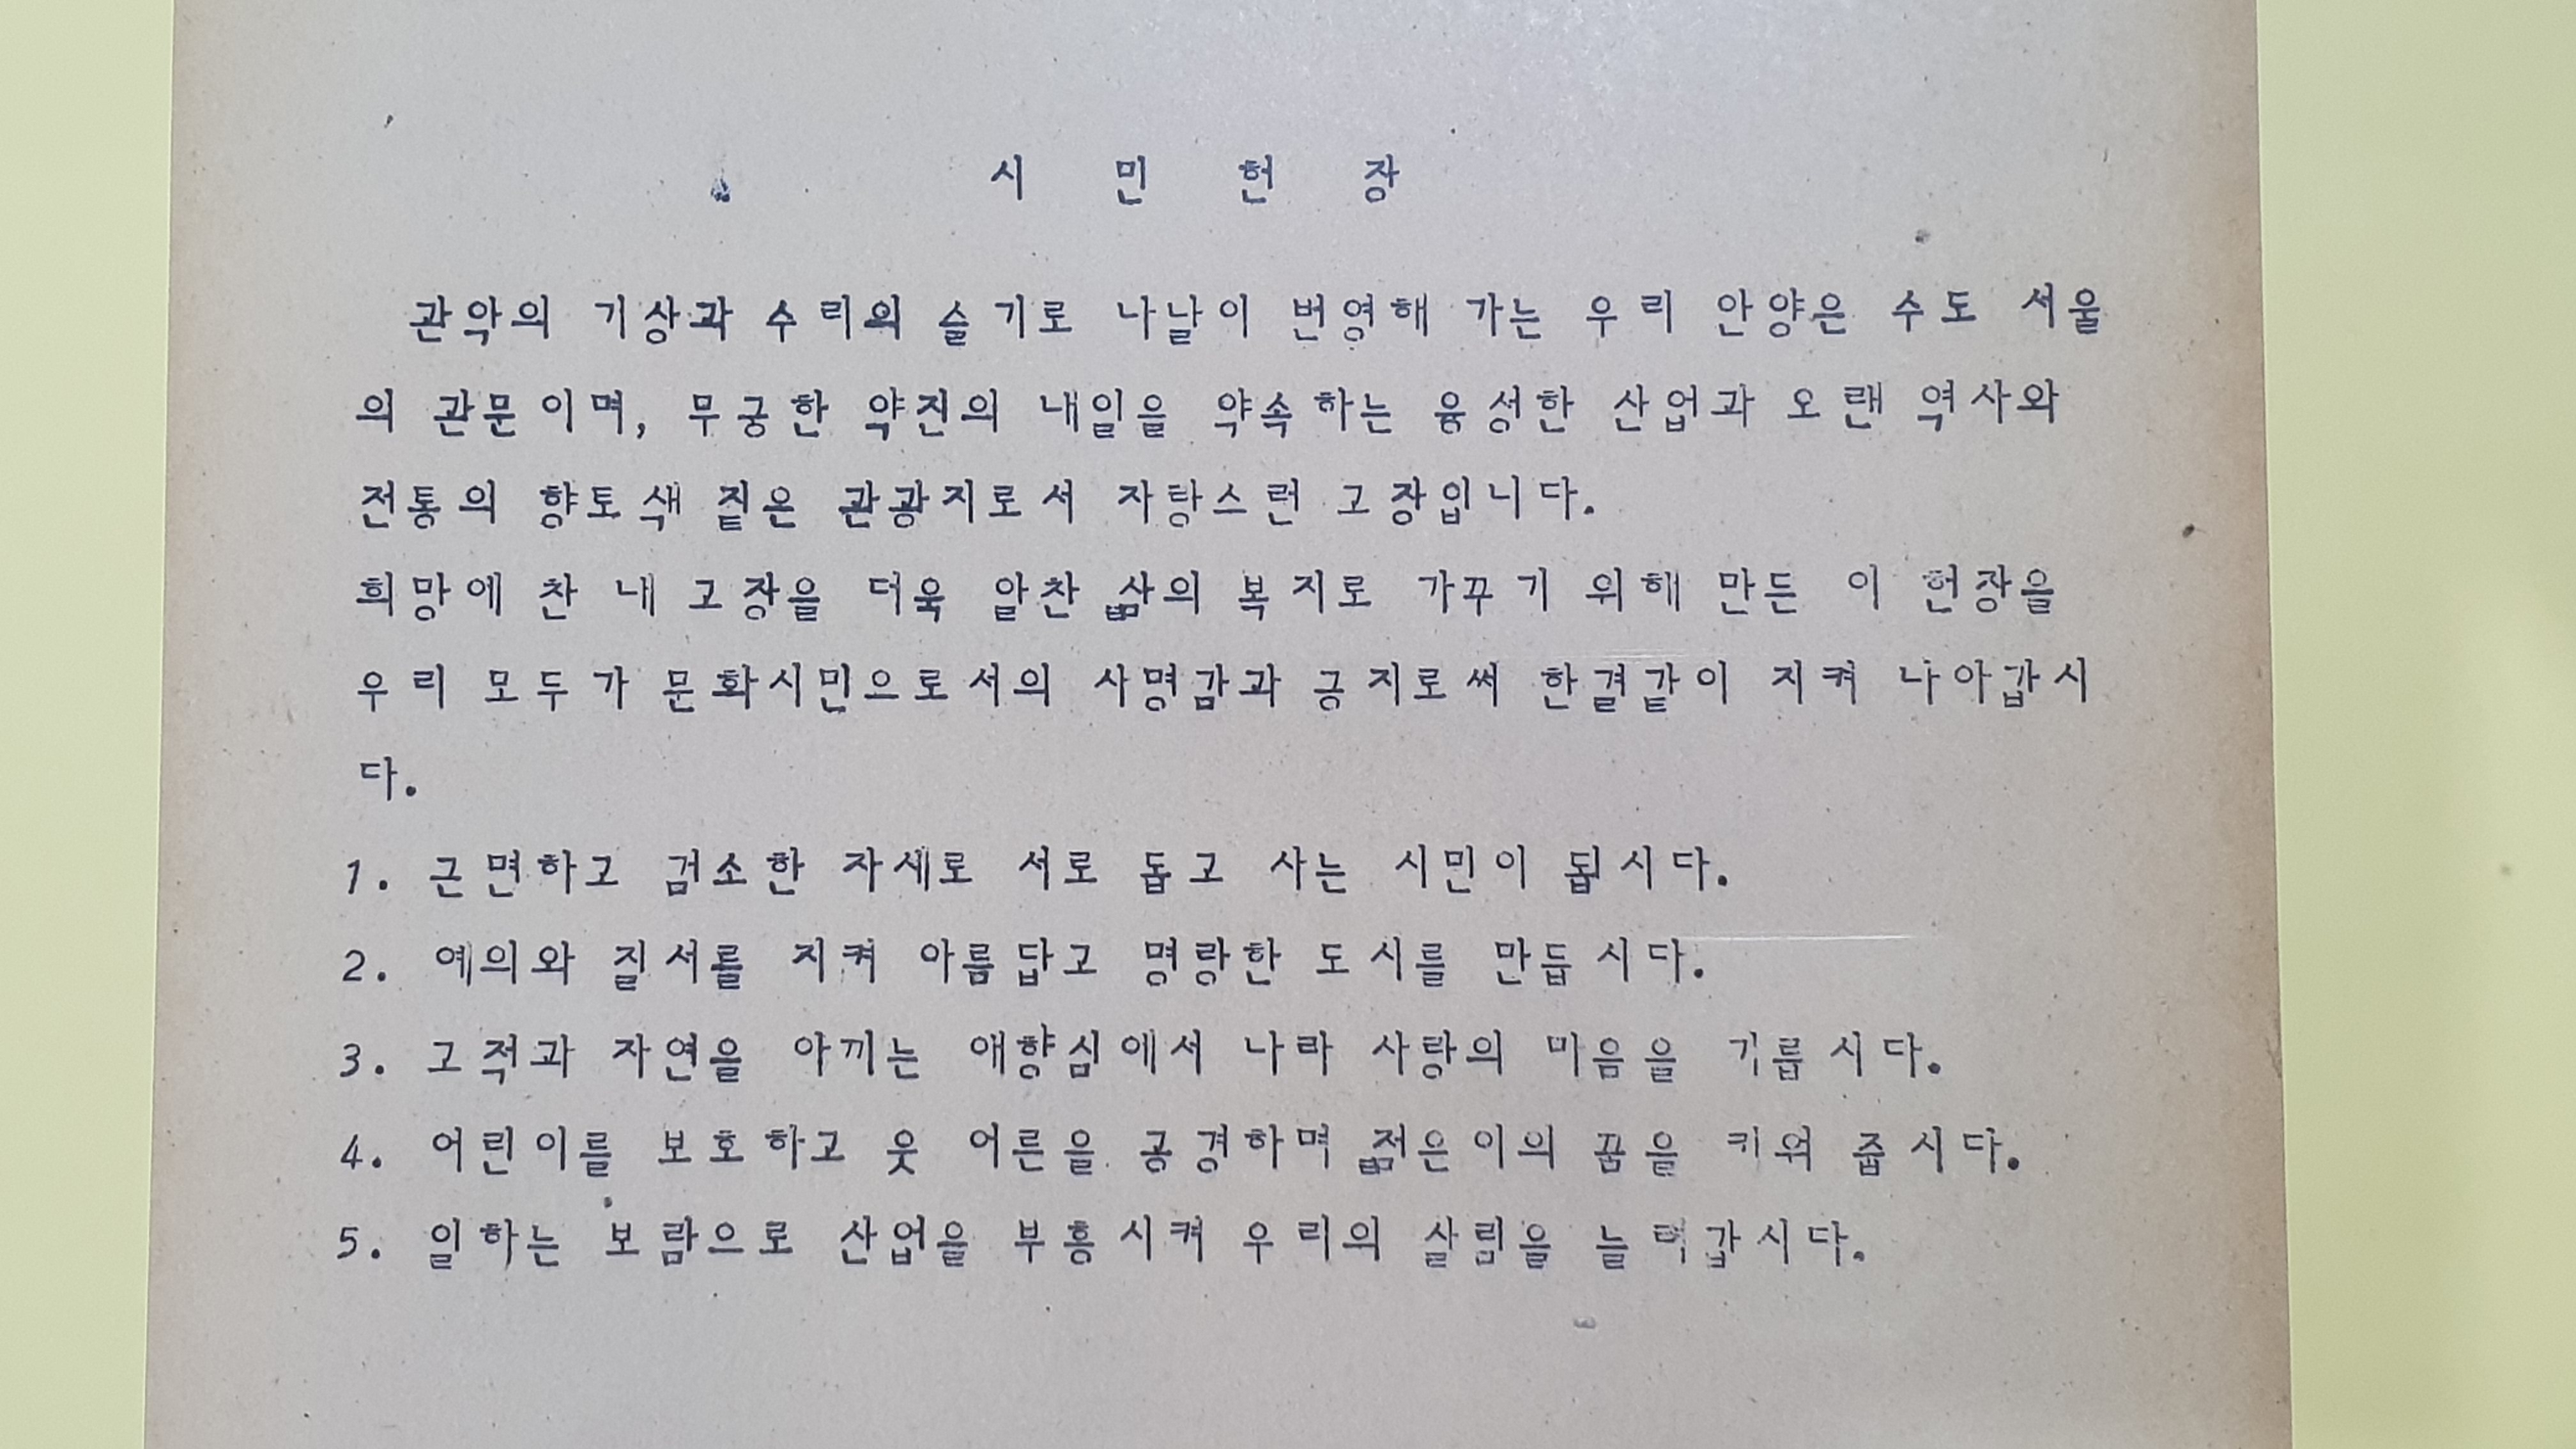 시 민 헌 장
관악의 기상과 수리의 슬기로 나날이 번영해 가는 우리 안양은 수도 서울
의 관문이며, 무궁한 약진의 내일을 약속하는 융성한 산업과 오랜 역사와
전통의 향토색 짙은 관광지로서 자랑스런 고장입니다.
희망에 찬 내 고장을 더욱 알찬 삶의 복지로 가꾸기 위해 만든 이 헌장을
우리 모두가 문화시민으로서의 사명감과 긍지로써 한결같이 지켜 나아갑시
다.
1. 근면하고 검소한 자세로 서로 돕고 사는 시민이 됩시다.
2. 예의와 질서를 지켜 아름답고 명랑한 도시를 만듭시다.
3. 고적과 자연을 아끼는 애향심에서 나라 사랑의 마음을 기릅시다.
4. 어린이를 보호하고 웃 어른을 공경하며 젊은이의 꿈을 키워 줍시다.
5. 일하는 보람으로 산업을 부흥시켜 우리의 살림을 늘려갑시다.